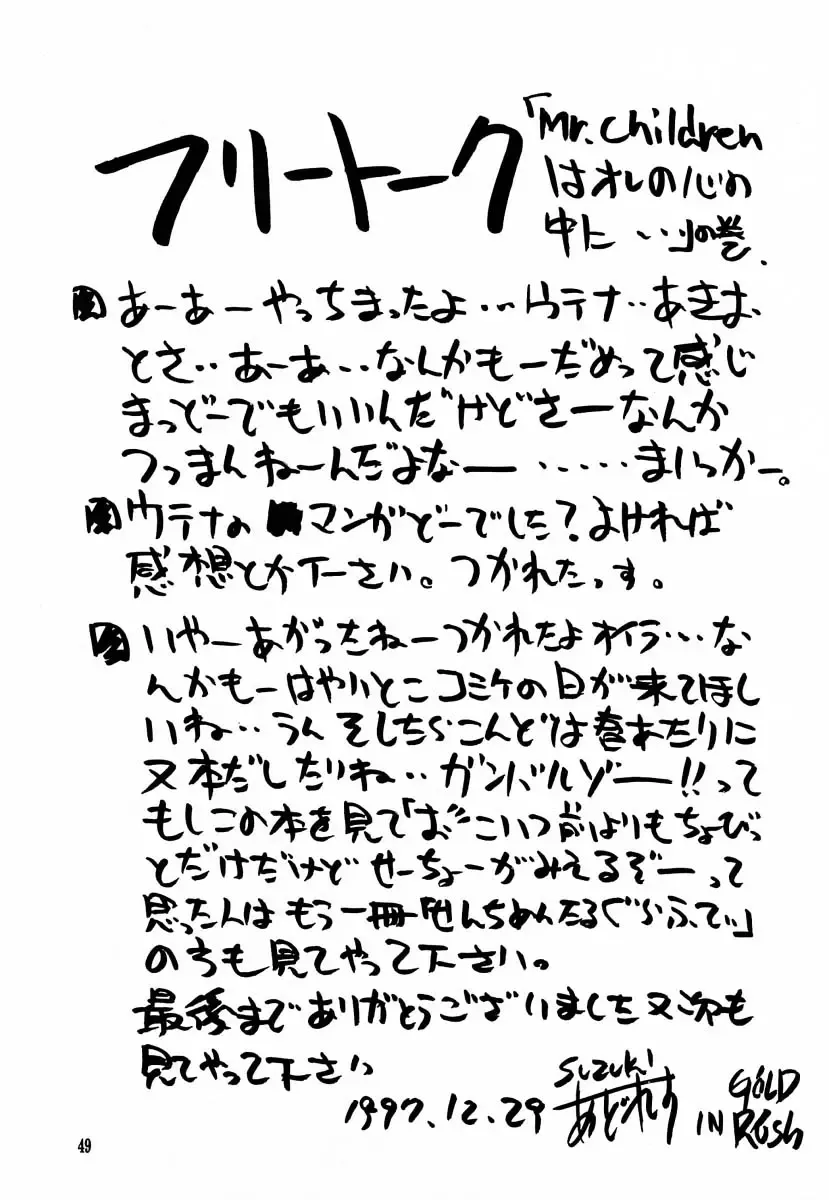 フリートーク
「Mr.Children
はオレの心の
中に・・・」の巻.
あーあーやっちまったよ・・・ウテナ・・あきお
とさ・・あーあ・・・なんかもーだめって感じ
まっどーでもいいんだけどさーなんか
つっまんねーんだよなー・・・・・まいっかー。
ウテナの マンガどーでした?よければ
感想とか下ーさい。つかれたっす。
いやーあがったねーつかれたよオイラ・・・な
んかもーはやいとこコミケの日が来てほし
いね・・うん そしたらこんどは春あたりに
又本だしたいね・・ガンバルゾー!!って
もしこの本を見て「お゛こいつ前よりもちょびっ
とだけだけどせーちょーがみえるぞーって
思った人はもう一冊「せんちめんたるぐらふてぃ」
のうも見てやって下さい。
最後までありがとうございました又次も
見てやって下さい
1997.12.29
suzuki
あどれす
GOLD
IN RUSh
49